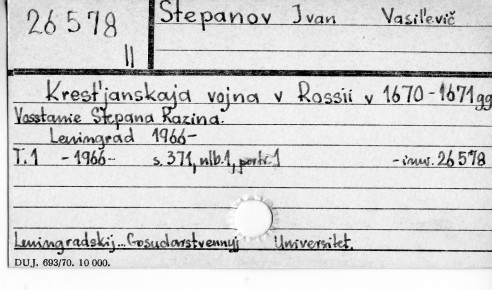 26578
II
Stepanov Ivan Vasil'evič
Krest'janskaja vojna v Rossii v 1670-1671gg
Vosstanie Stepana Razina.
Leningrad 1966-
T.1 -1966- s. 371, nlb.1, portr.1 -inw. 26578
Leningradskij... Gosudarstvennyj Universitet.
DUJ. 693/70. 10 000.